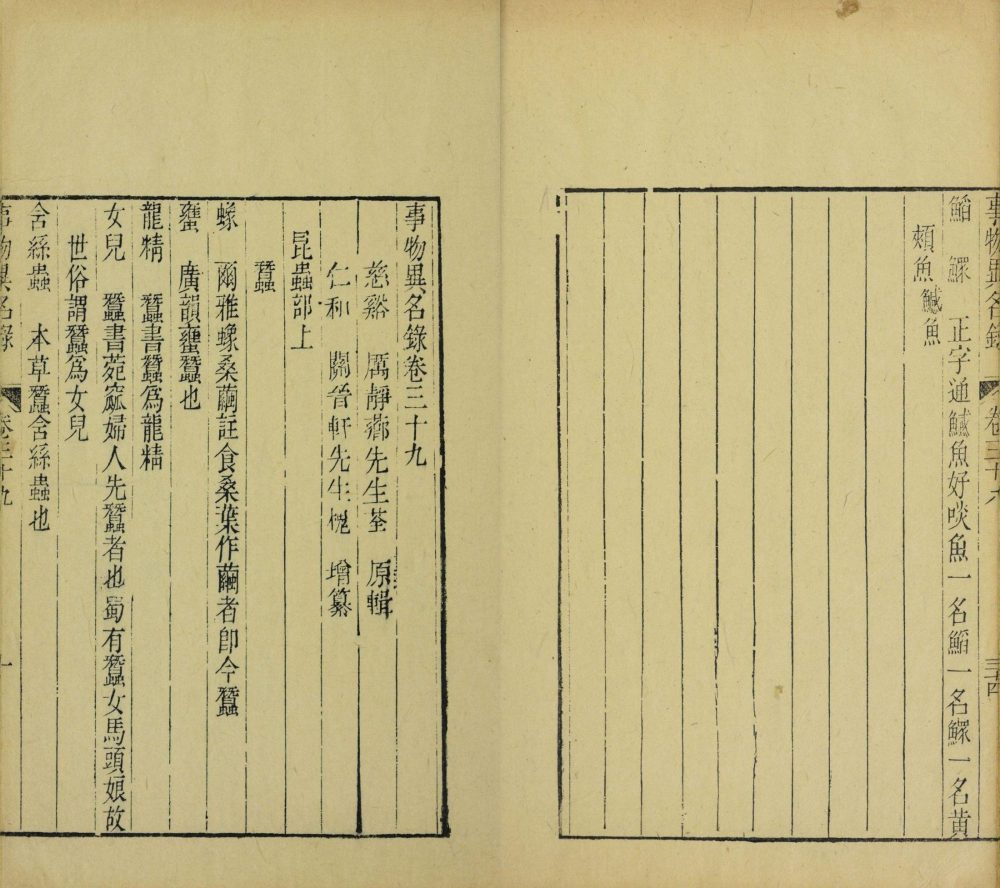 事物異名錄 卷三十八 三十四
䱤 鰥 正字通鱤魚好啖魚一名䱤一名鰥一名黃
頰魚鱤魚
事物異名錄卷三十九
慈谿 厲靜薌先生荃 原輯
仁和 關晉軒先生槐 增纂
昆蟲部上
蠶
蟓 爾雅蟓桑繭註食桑葉作繭者卽今蠶
䗸 廣韻䗸蠶也
龍精 蠶書蠶爲龍精
女兒 蠶書菀窳婦人先蠶者也蜀有蠶女馬頭娘故
世俗謂蠶爲女兒
含絲蟲 本草蠶含絲蟲也
事物異名錄 卷三十九 一